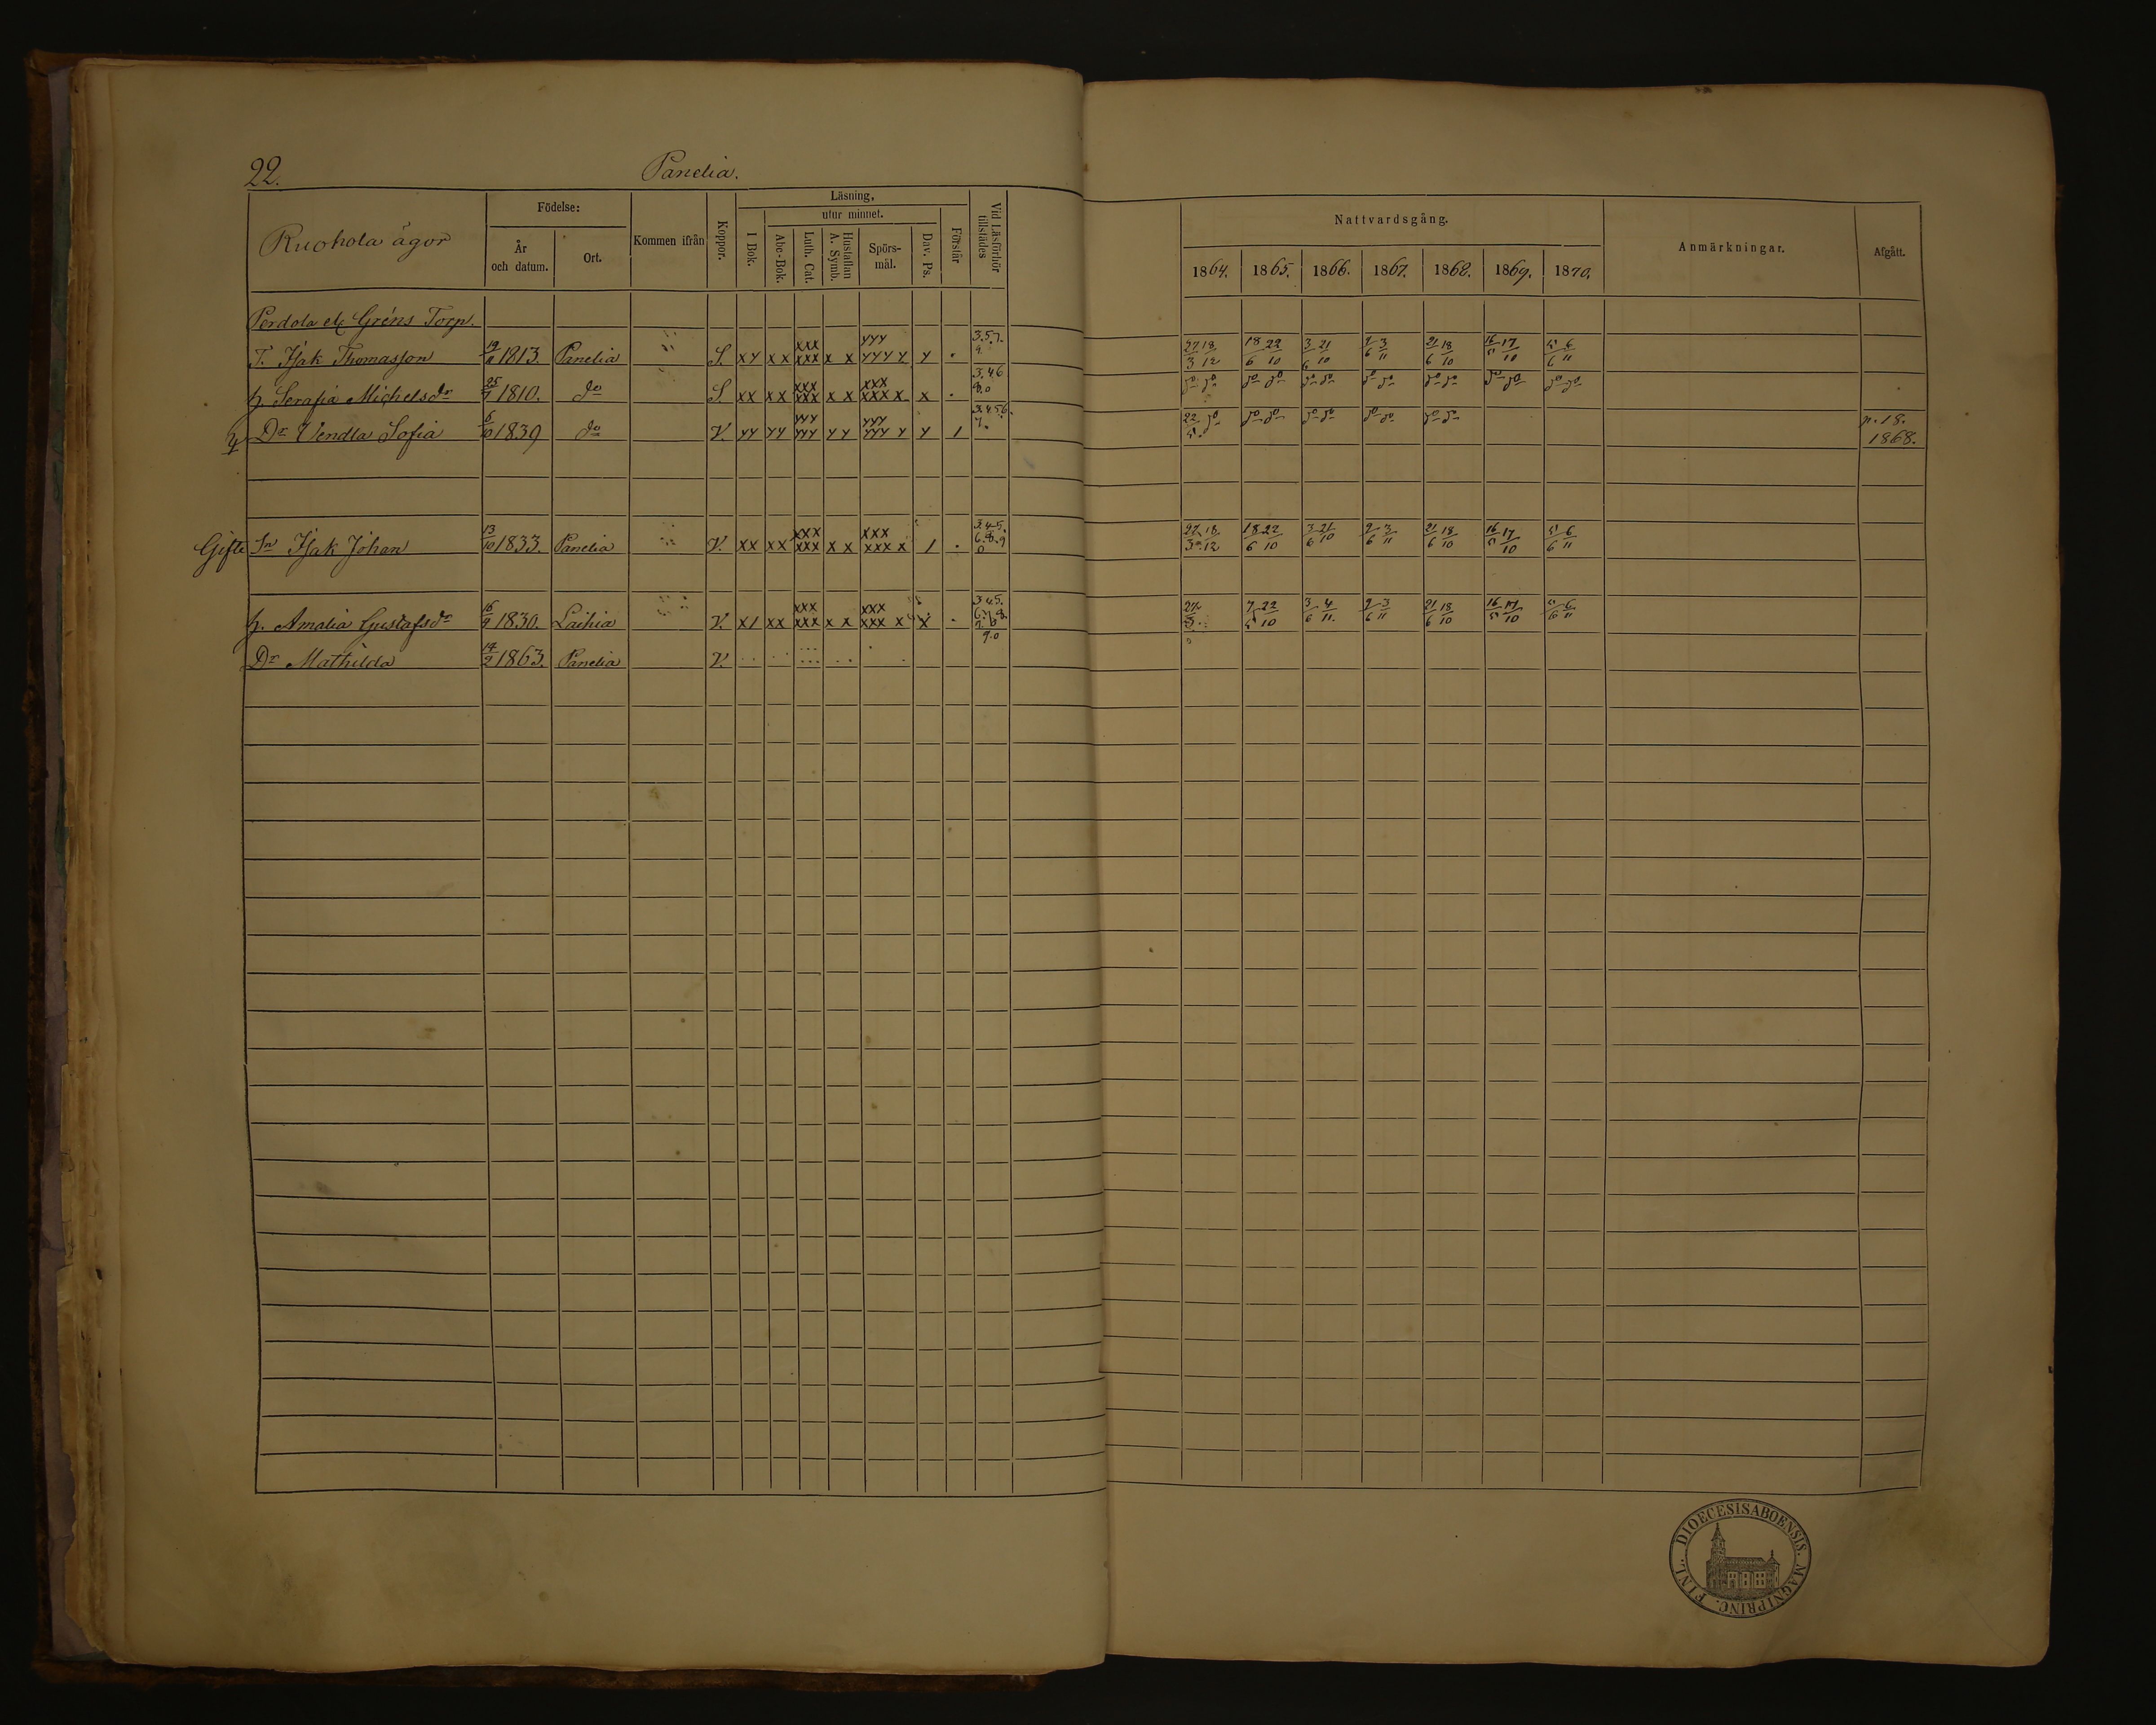 22.
Panelia.
Ruohola ägor
Födelse:
År och datum.
Ort.
Kommen ifrån
Koppor.
Läsning,
I Bok.
utur minnet.
Abc-Bok.
Luth. Cat.
Hustaflan A. Symb.
Spörs-mål.
Dav. Ps.
Förstår
Vid Läsförhör tillstädes
Nattvardsgång.
1864. 1865. 1866. 1867. 1868. 1869. 1870.
Anmärkningar.
Afgått.
Perdola el. Gréns Torp.
T. Isak Thomasson 1813. Panelia S. xy xx xxx xxx x x yyy yyy y y . 3.5.7. 9. 27/3 18/12 18/6 22/10 3/6 21/10 2/6 3/11 21/6 18/10 16/5 17/10 5/6 6/11
h. Serafia Michelsdr 25/7 1810. do S. xx xx xxx xxx x x xxx xxx x x . 3.4.6 8.0 do do do do do do do do do do do do do do
Dr Vendla Sofia 6/10 1839 do V. yy yy yyy yyy y y yyy yyy y y / 3.4.5.6. 7. 22/5. do do do do do do do do do p. 18. 1868.
Gifte Sn Isak Johan 13/10 1833. Panelia V. xx xx xxx xxx x x xxx xxx x / . 3.4.5. 6.8.9 0 27/3 18/12 18/6 22/10 3/6 21/10 2/6 3/11 21/6 18/10 16/5 17/10 5/6 6/11
h. Amalia Gustafsdr 16/9 1830. Laihia V. x/ xx xxx xxx x x xxx xxx x x 3.4.5. 6.7.8. 9.0 7/5 22/10 3/6 4/11. 2/6 3/11 21/6 18/10 16/5 17/10 5/6 6/11
Dr Mathilda 14/2 1863. Panelia V.
DIOECESIS ABOENSIS. MAGNI PRINC. FINL.